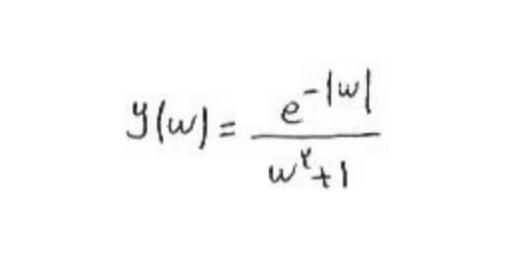 y(w) = e^(-|w|) / (w^۲+1)